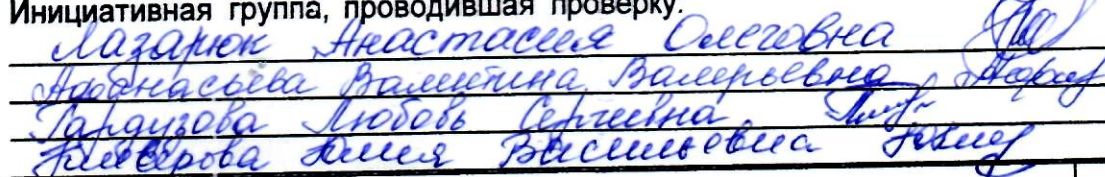 Инициативная группа, проводившая проверку:
Лазарюк Анастасия Олеговна
Афанасьева Валентина Валерьевна
Любовь Сергеевна
Юлия Васильевна